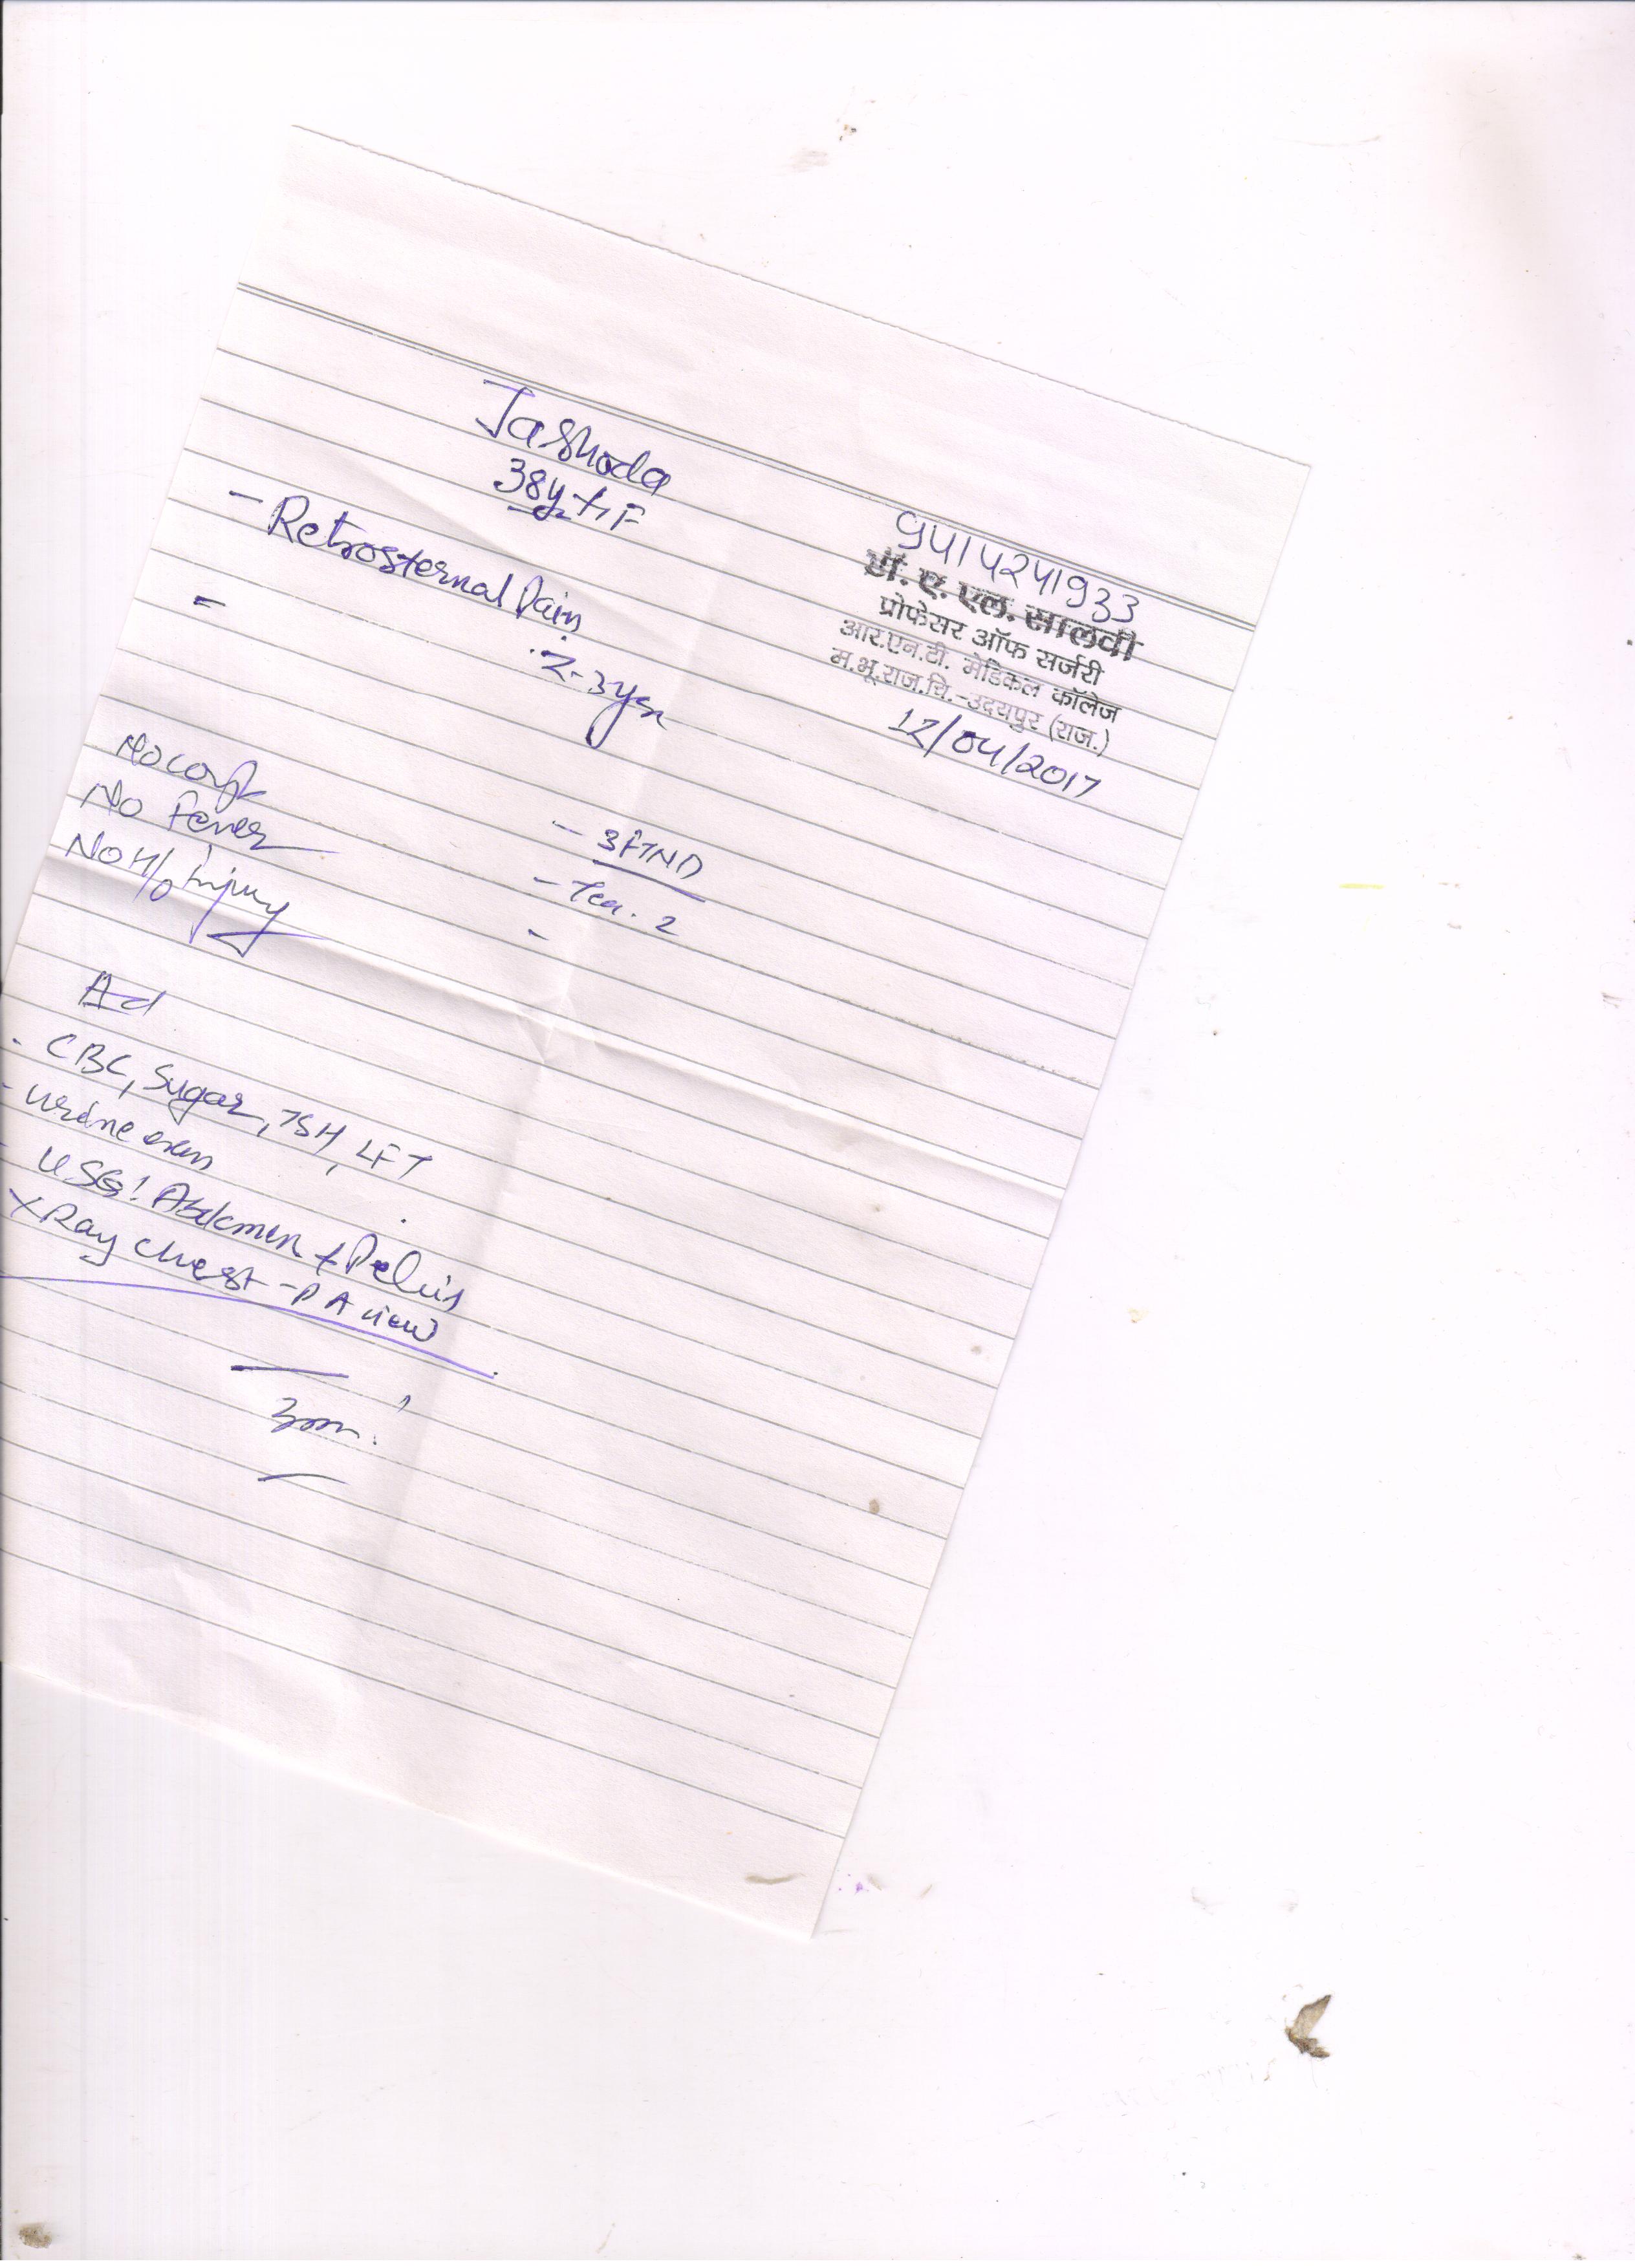 Jashoda
38yr, F
9414241933
डॉ. ए. एल. सालवी
प्रोफेसर ऑफ सर्जरी
आर.एन.टी. मेडिकल कॉलेज
म.भू.राज.चि.-उदयपुर (राज.)
12/04/2017
- Retrosternal Pain
2-3 yrs
-
No cough
No Fever
No H/o injury
- 3FTND
- 2
-
Ad
- CBC, Sugar, TSH, LFT
- urine exam
- USG: Abdomen & Pelvis
X Ray chest - PA view